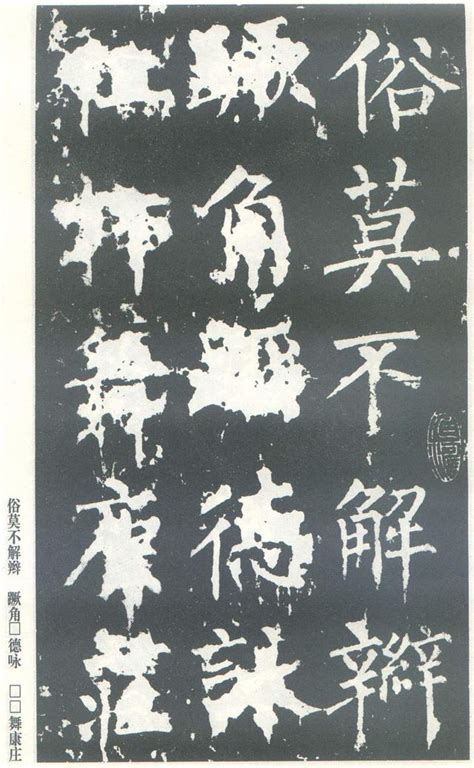 俗莫不解辮
蹶角□德詠
舞康莊
俗莫不解辮　蹶角□德咏　□□舞康庄